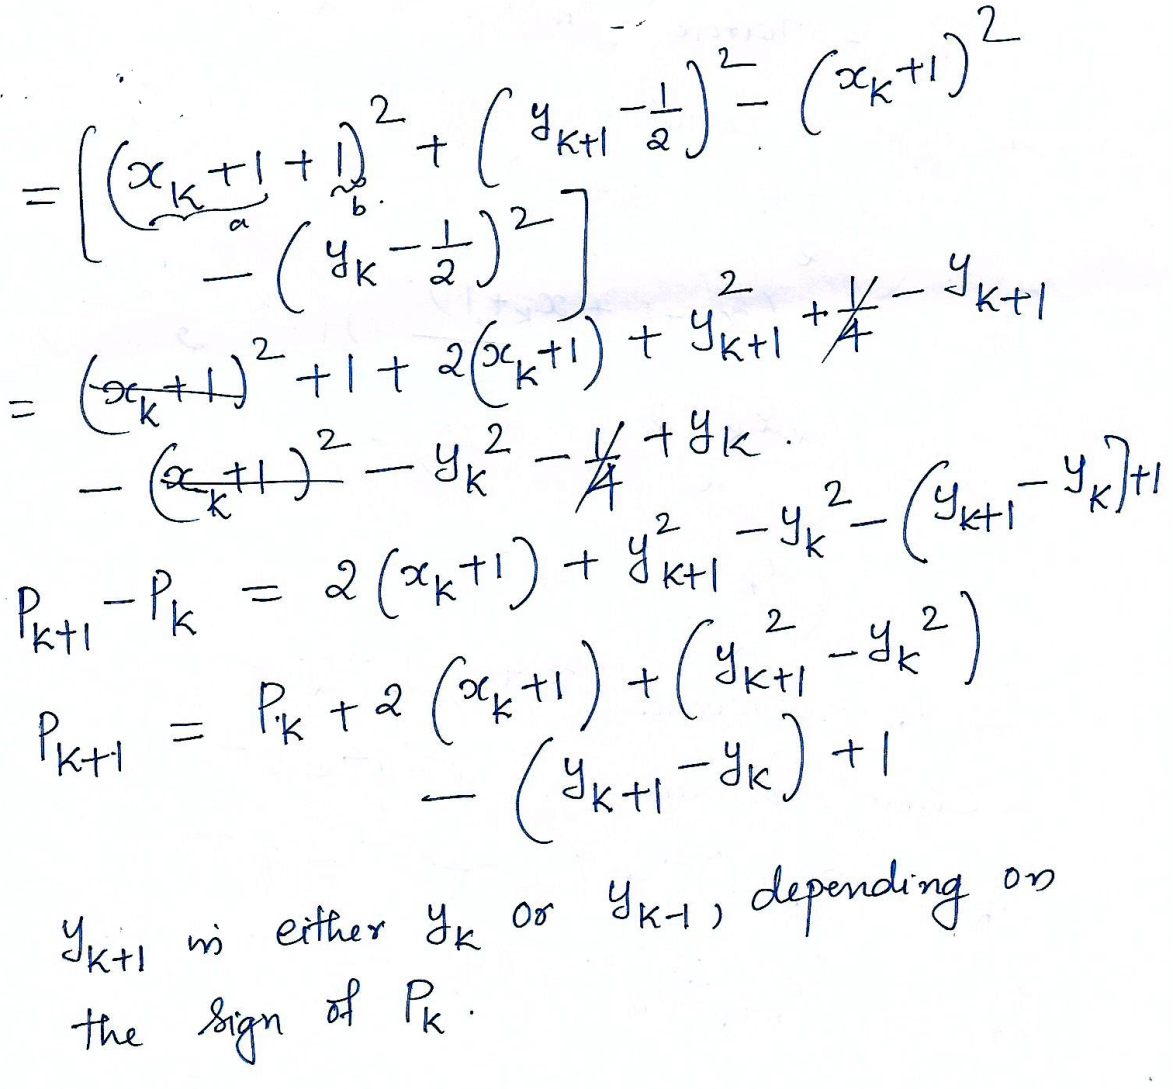 = [(x_k + 1 + 1)² + (y_{k+1} - 1/2)² - (x_k + 1)²
a b.
- (y_k - 1/2)²]
= (x_k + 1)² + 1 + 2(x_k + 1) + y²_{k+1} + 1/4 - y_{k+1}
- (x_k + 1)² - y_k² - 1/4 + y_k.
P_{k+1} - P_k = 2(x_k + 1) + y²_{k+1} - y_k² - (y_{k+1} - y_k) + 1
P_{k+1} = P_k + 2(x_k + 1) + (y²_{k+1} - y_k²)
- (y_{k+1} - y_k) + 1
y_{k+1} is either y_k or y_{k-1}, depending on
the sign of P_k.